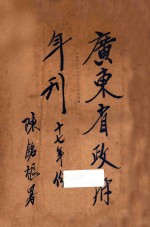 廣東省政府
年刊
十七年份
陳銘樞署